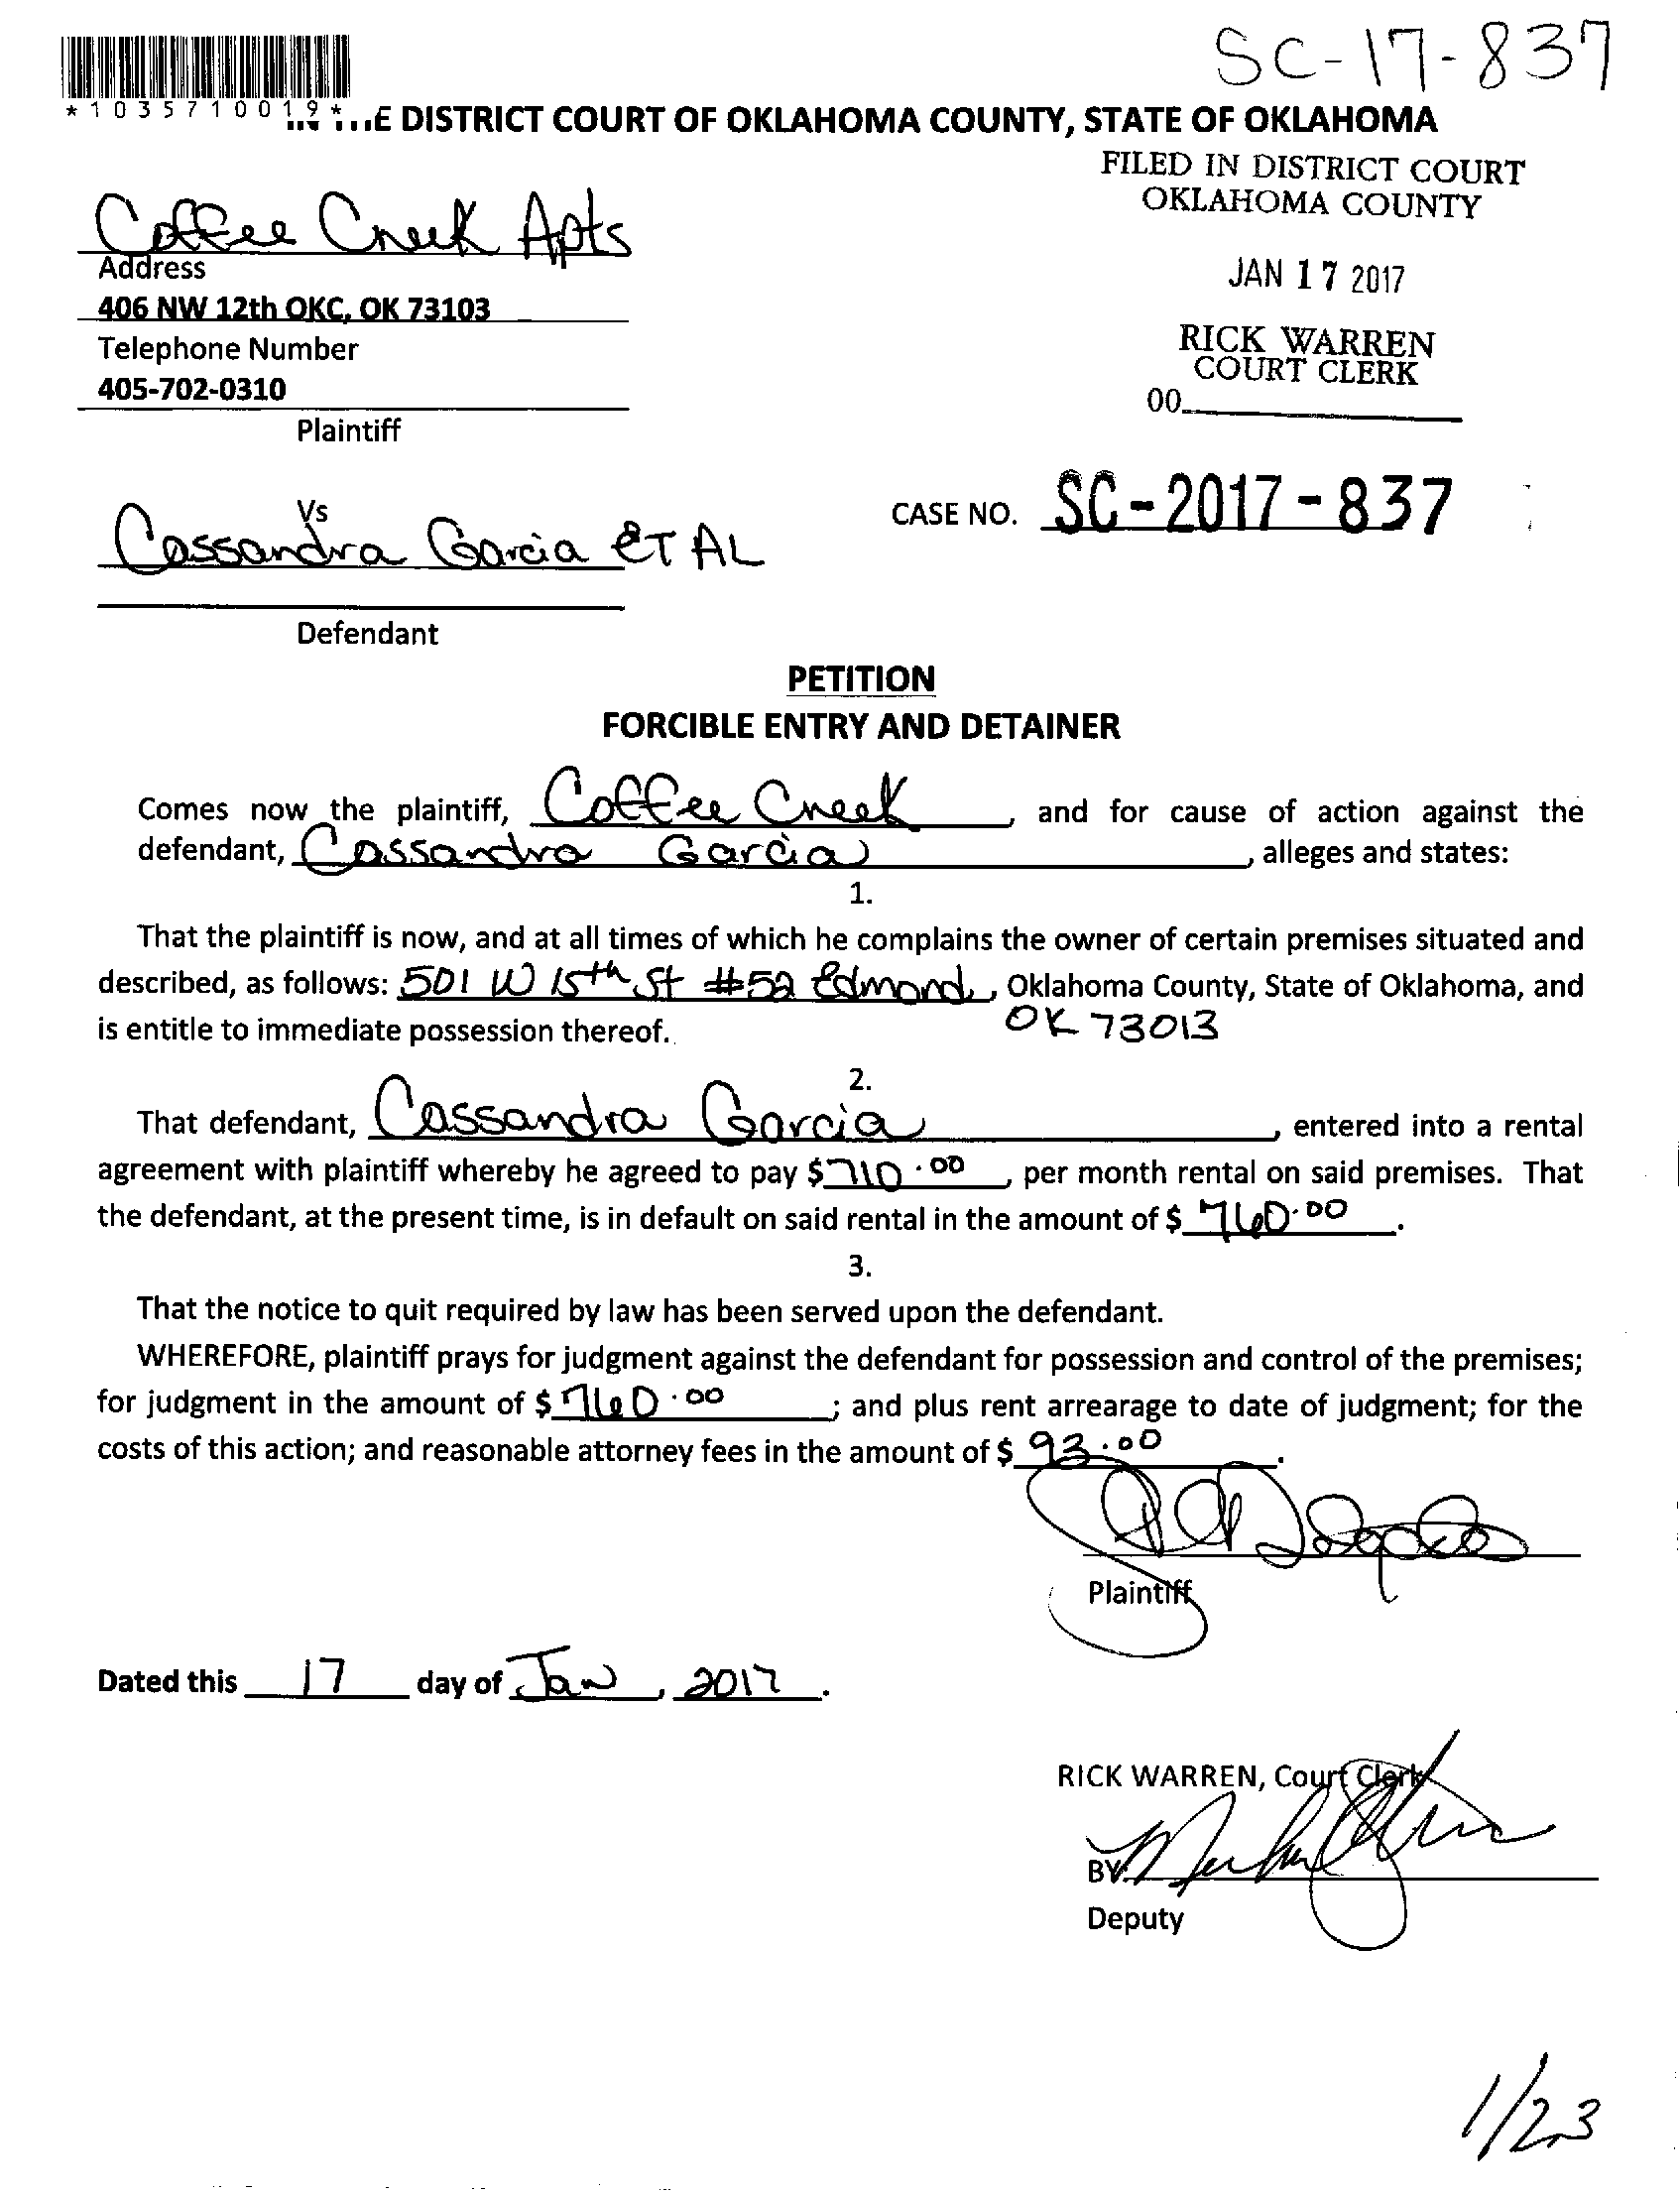 SC-17-837
*1035710019*
E DISTRICT COURT OF OKLAHOMA COUNTY, STATE OF OKLAHOMA
FILED IN DISTRICT COURT
OKLAHOMA COUNTY
JAN 17 2017
RICK WARREN
COURT CLERK
00
Coffee Creek Apts
Address
406 NW 12th OKC, OK 73103
Telephone Number
405-702-0310
Plaintiff
Vs
Cassandra Garcia ET AL
CASE NO. SC-2017-837
Defendant
PETITION
FORCIBLE ENTRY AND DETAINER
Comes now the plaintiff, Coffee Creek, and for cause of action against the
defendant, Cassandra Garcia, alleges and states:
1.
That the plaintiff is now, and at all times of which he complains the owner of certain premises situated and
described, as follows: 501 W 15th St #52 Edmond, Oklahoma County, State of Oklahoma, and
is entitle to immediate possession thereof. OK 73013
2.
That defendant, Cassandra Garcia, entered into a rental
agreement with plaintiff whereby he agreed to pay $710.00, per month rental on said premises. That
the defendant, at the present time, is in default on said rental in the amount of $ 760.00.
3.
That the notice to quit required by law has been served upon the defendant.
WHEREFORE, plaintiff prays for judgment against the defendant for possession and control of the premises;
for judgment in the amount of $760.00; and plus rent arrearage to date of judgment; for the
costs of this action; and reasonable attorney fees in the amount of $ 93.00.
Plaintiff
Dated this 17 day of Jan, 2017.
RICK WARREN, Court Clerk
BY:
Deputy
1/23